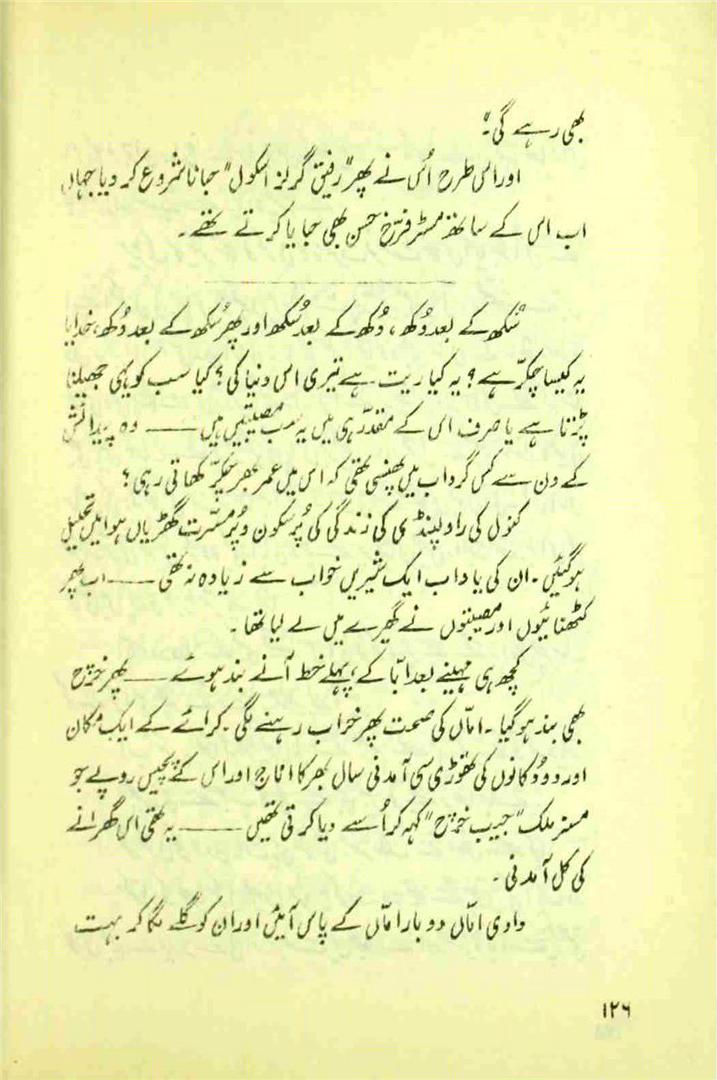 بھی رہے گی۔"
اور اس طرح اُس نے پھر "رفیق گرلز اسکول" جانا شروع کر دیا جہاں
اب اس کے ساتھ مسٹر فرّخ حسن بھی جایا کرتے تھے۔
سُکھ کے بعد دُکھ، دُکھ کے بعد سُکھ اور پھر سُکھ کے بعد دُکھ، خدایا
یہ کیسا چکّر ہے؟ یہ کیا ریت ہے تیری اس دنیا کی؟ کیا سب کو یہی جھیلنا
پڑتا ہے یا صرف اس کے مقدّر ہی میں یہ سب مصیبتیں ہیں —— وہ پیدائش
کے دن سے کس گرداب میں پھنسی تھی کہ اس میں عمر بھر چکّر کھاتی رہی؟
کنول کی راولپنڈی کی زندگی کی پُرسکون و پُرمسرّت گھڑیاں ہوا میں تحلیل
ہو گئیں۔ ان کی یاد اب ایک شیریں خواب سے زیادہ نہ تھی —— اب پھر
کٹھنائیوں اور مصیبتوں نے گھیرے میں لے لیا تھا۔
کچھ ہی مہینے بعد ابّا کے، پہلے خط آنے بند ہوئے —— پھر خرچ
بھی بند ہو گیا۔ امّاں کی صحت پھر خراب رہنے لگی۔ کرائے کے ایک مکان
اور دو دُکانوں کی تھوڑی سی آمدنی سال بھر کا اناج اور اس کے پچیس روپے جو
مسز ملک "جیب خرچ" کہہ کر اُسے دیا کرتی تھیں —— یہ تھی اس گھرانے
کی کل آمدنی۔
دادی امّاں دو بار امّاں کے پاس آئیں اور ان کو گلے لگا کر بہت
۱۲۶